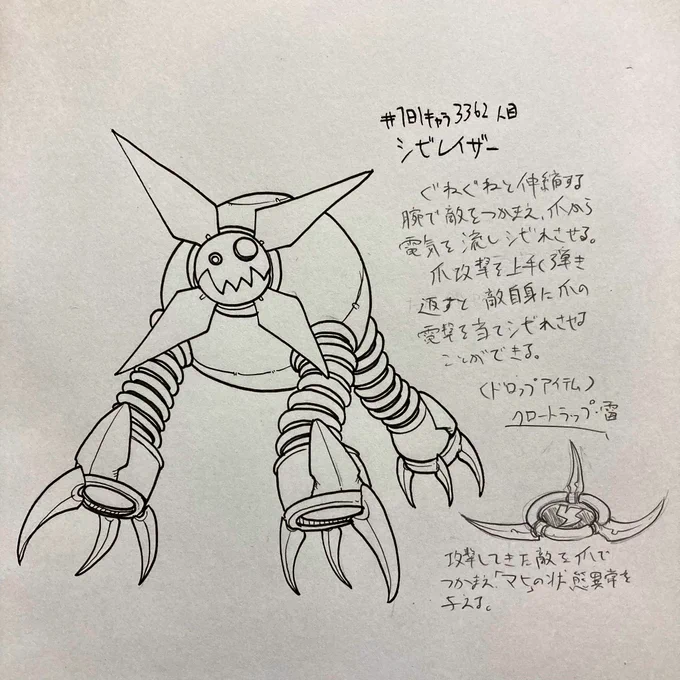 #1日1キャラ3362人目
シビレイザー
ぐねぐねと伸縮する
腕で敵をつかまえ、爪から
電気を流しシビれさせる。
爪攻撃を上手く弾き
返すと敵自身に爪の
電撃を当てシビれさせる
ことができる。
(ドロップアイテム)
クロートラップ・雷
攻撃してきた敵を爪で
つかまえ「マヒ」の状態異常を
与える。